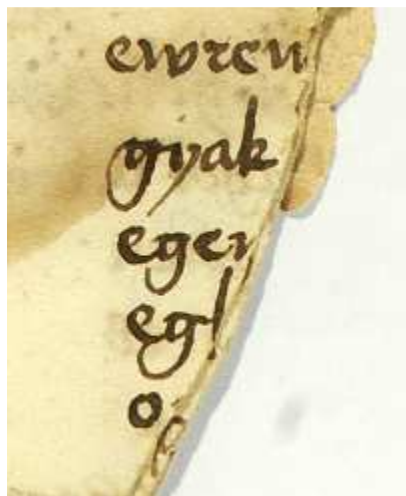 ewren
gyak
egen
egl
o